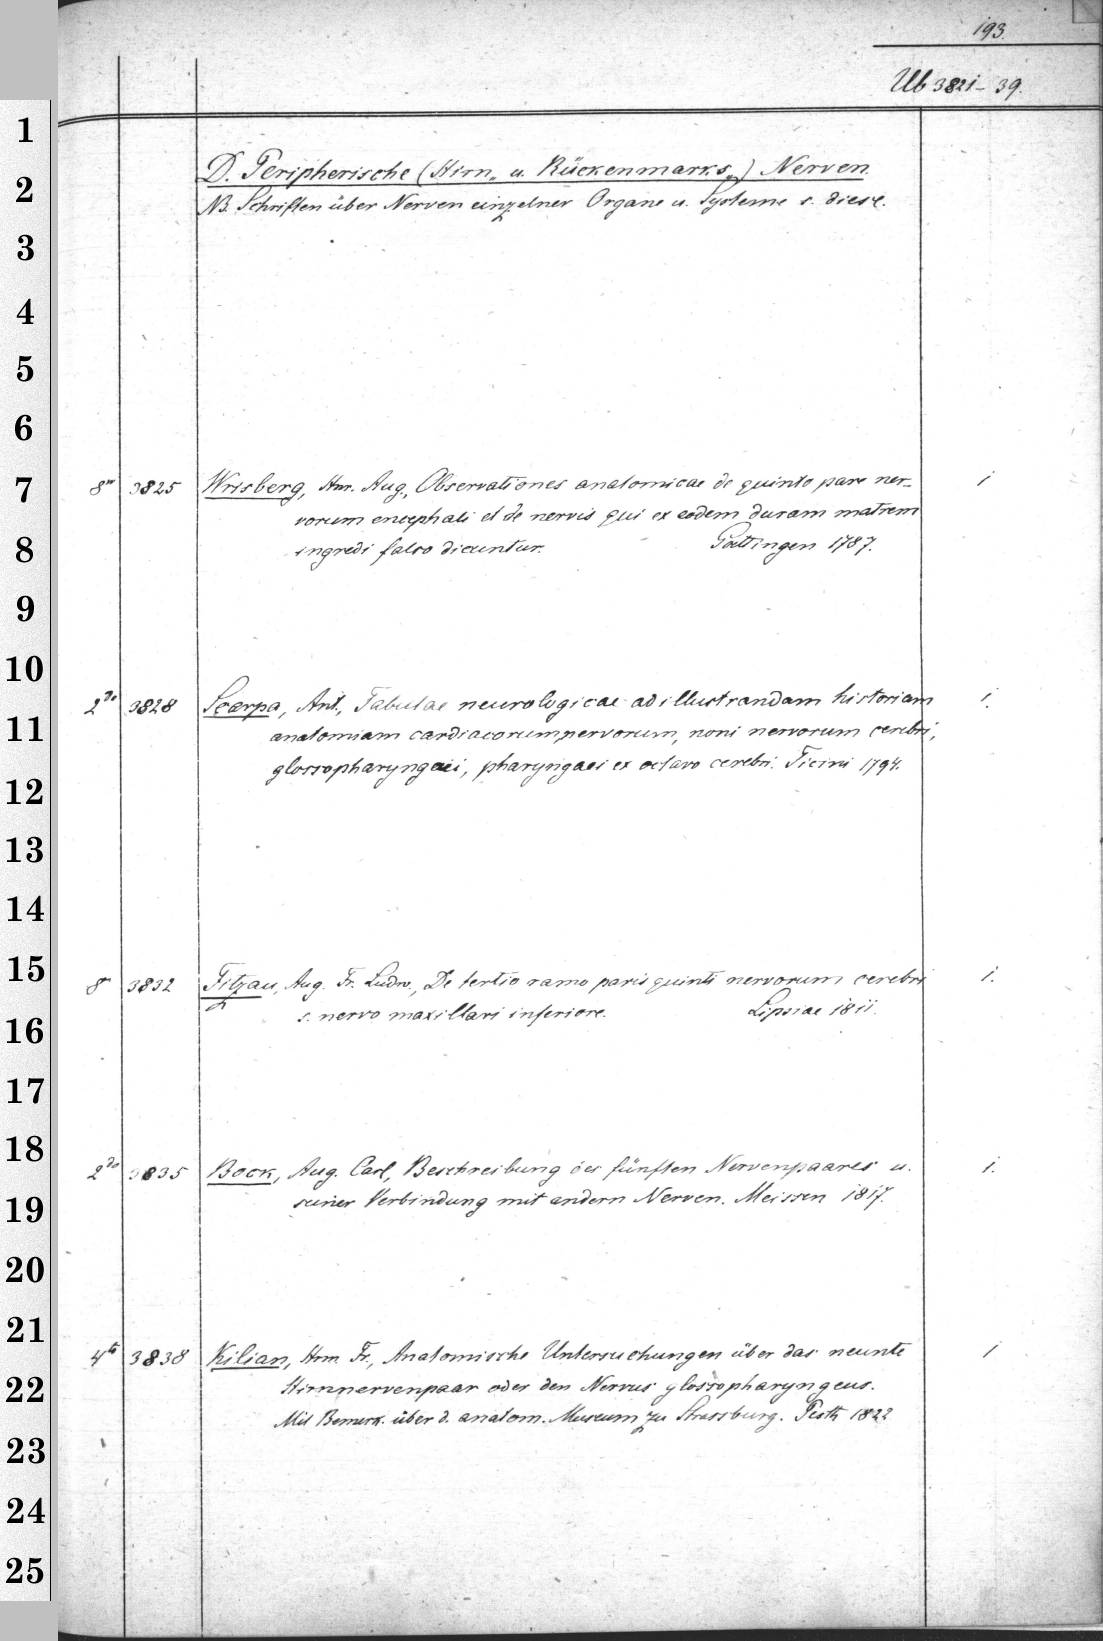 193.
Ub 3821-39.
D. Peripherische (Hirn- u. Rückenmarks-) Nerven.
NB. Schriften über Nerven einzelner Organe u. Systeme s. diese.
8° 3825 Wrisberg, Hnr. Aug., Observationes anatomicae de quinto pare ner- 1
vorum encephali et de nervis qui ex eodem duram matrem
ingredi falso dicuntur. Goettingen 1787.
2do 3828 Scarpa, Ant., Tabulae neurologicae ad illustrandam historiam 1.
anatomiam cardiacorum nervorum, noni nervorum cerebri,
glossopharyngaei, pharyngaei ex octavo cerebri. Ticini 1794.
8° 3832 Fitzau, Aug. Fr. Ludw., De tertio ramo paris quinti nervorum cerebri 1.
s. nervo maxillari inferiore. Lipsiae 1811.
2do 3835 Bock, Aug. Carl, Beschreibung des fünften Nervenpaares u. 1.
seiner Verbindung mit andern Nerven. Meissen 1817.
4to 3838 Kilian, Hrm. Fr., Anatomische Untersuchungen über das neunte 1
Hirnnervenpaar oder den Nervus glossopharyngeus.
Mit Bemerk. über d. anatom. Museum zu Strassburg. Pesth 1822
1
2
3
4
5
6
7
8
9
10
11
12
13
14
15
16
17
18
19
20
21
22
23
24
25